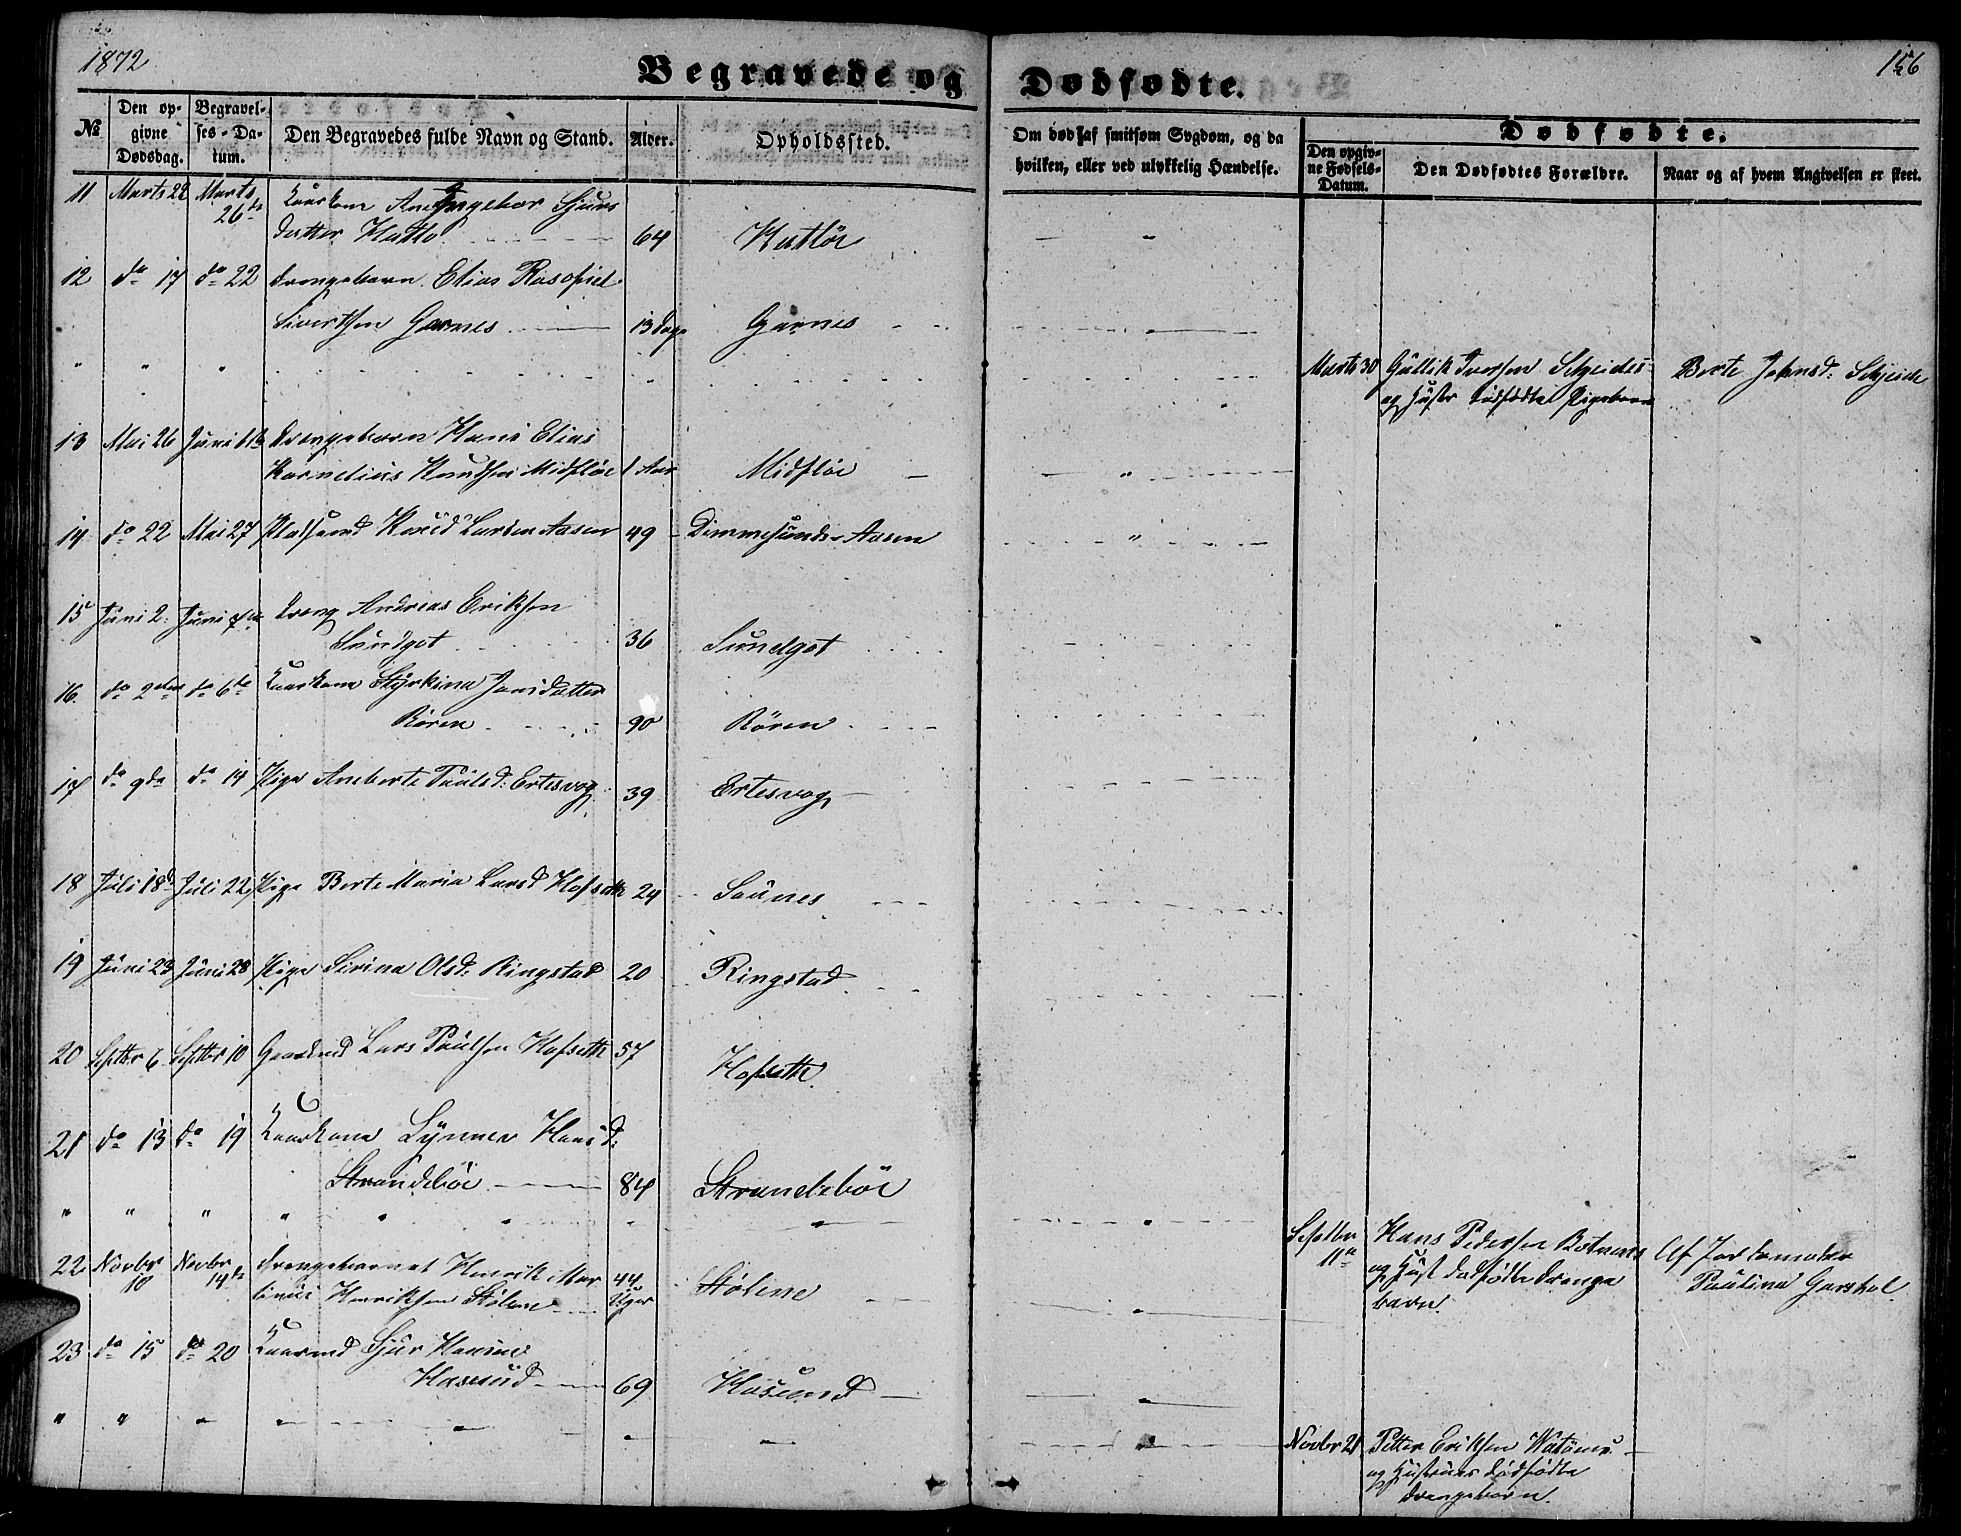 1872
156
Begravede og Dødfødte.
№
Den opgivne Dødsdag.
Begravelses-Datum.
Den Begravedes fulde Navn og Stand.
Alder.
Opholdssted.
Om død af smitsom Sygdom, og da hvilken, eller ved ulykkelig Hændelse.
Dødfødte.
Den opgivne Fødsels-Datum.
Den Dødfødtes Forældre.
Naar og af hvem Angivelsen er skeet.
11 Marts 22 Marts 26de Kaarkone Ane Ingebor Sjurs
datter Hatlo 64 Hatlöe
12 do 17 do 22 Drengebarn Elias
Sivertsen Garnes 13 Dage Garnes
Marts 30 Gullik Iversen Skjeides Berte Johnsd: Skjeide
og Hustr dödfödte Pigebarn
13 Mai 26 Juni Drengebarn Hans Elias
Kornelius Knudsen Midflöe 1 Aar Midflöe
14 do 22 Mai 27 Pladsmd Knud Larsen Aasen 49 Dimmesunds-Aasen
15 Juni 2 Juni Dreng Andreas Eriksen
Sundgot 36 Sundgot
16. do 2den do 6te Kaarkone Styrkina Jansdatter
Rören 90 Rören
17 do 9de do 14 Pige Aneberte Paulsd: Ertesvog 39 Ertesvog
18 Juli 18d Juli 22 Pige Berte Maria Larsd Hofseth 24 Saunes
19 Juni 23 Juni 28 Pige Sirina Olsd: Ringstad 20 Ringstad
20 Septbr 6 Septbr 10 Gaardmd Lars Paulsen Hofseth 57 Hofseth
21 do 13 do 19 Kaarkone Synnev Hansd:
Strandeböe 84 Strandeböe
Septbr Hans Pedersen Botnens Af Jordemoder
11te og Hust dödfödte Drenge Paulina Garshol
barn
22 Novbr 10 Novbr 14de Drengebarnet Henrik Mar
tinus Henriksen Stölene 44 Uger Stölene
23 do 15 do 20 Kaarmd Sjur Hansen
Hasund 69 Hasund
Novbr 21 Petter Eriksen
og Hustrues dödfödte
Drengebarn.